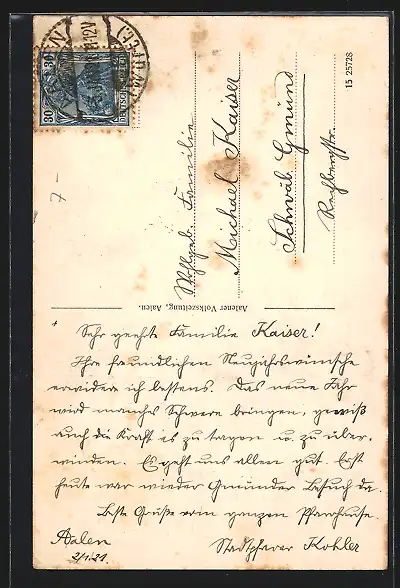 AALEN
1-12V
30 30
DEUTSCHES REICH
15 25728
7-
Wohlgeb. Familie
Michael Kaiser
Schwäb. Gmünd
Rechbergstr.
Aalener Volkszeitung, Aalen.
Sehr geehrte Familie Kaiser!
Ihre freundlichen Neujahrswünsche
erwidere ich bestens. Das neue Jahr
wird manches Schwere bringen, gewiß
auch die Kraft es zu tragen u. zu über-
winden. Es geht uns allen gut. Erst
heute war wieder Gmünder Besuch da.
Beste Grüße vom ganzen Pfarrhause.
Aalen
2/1.21.
Stadtpfarrer Kohler